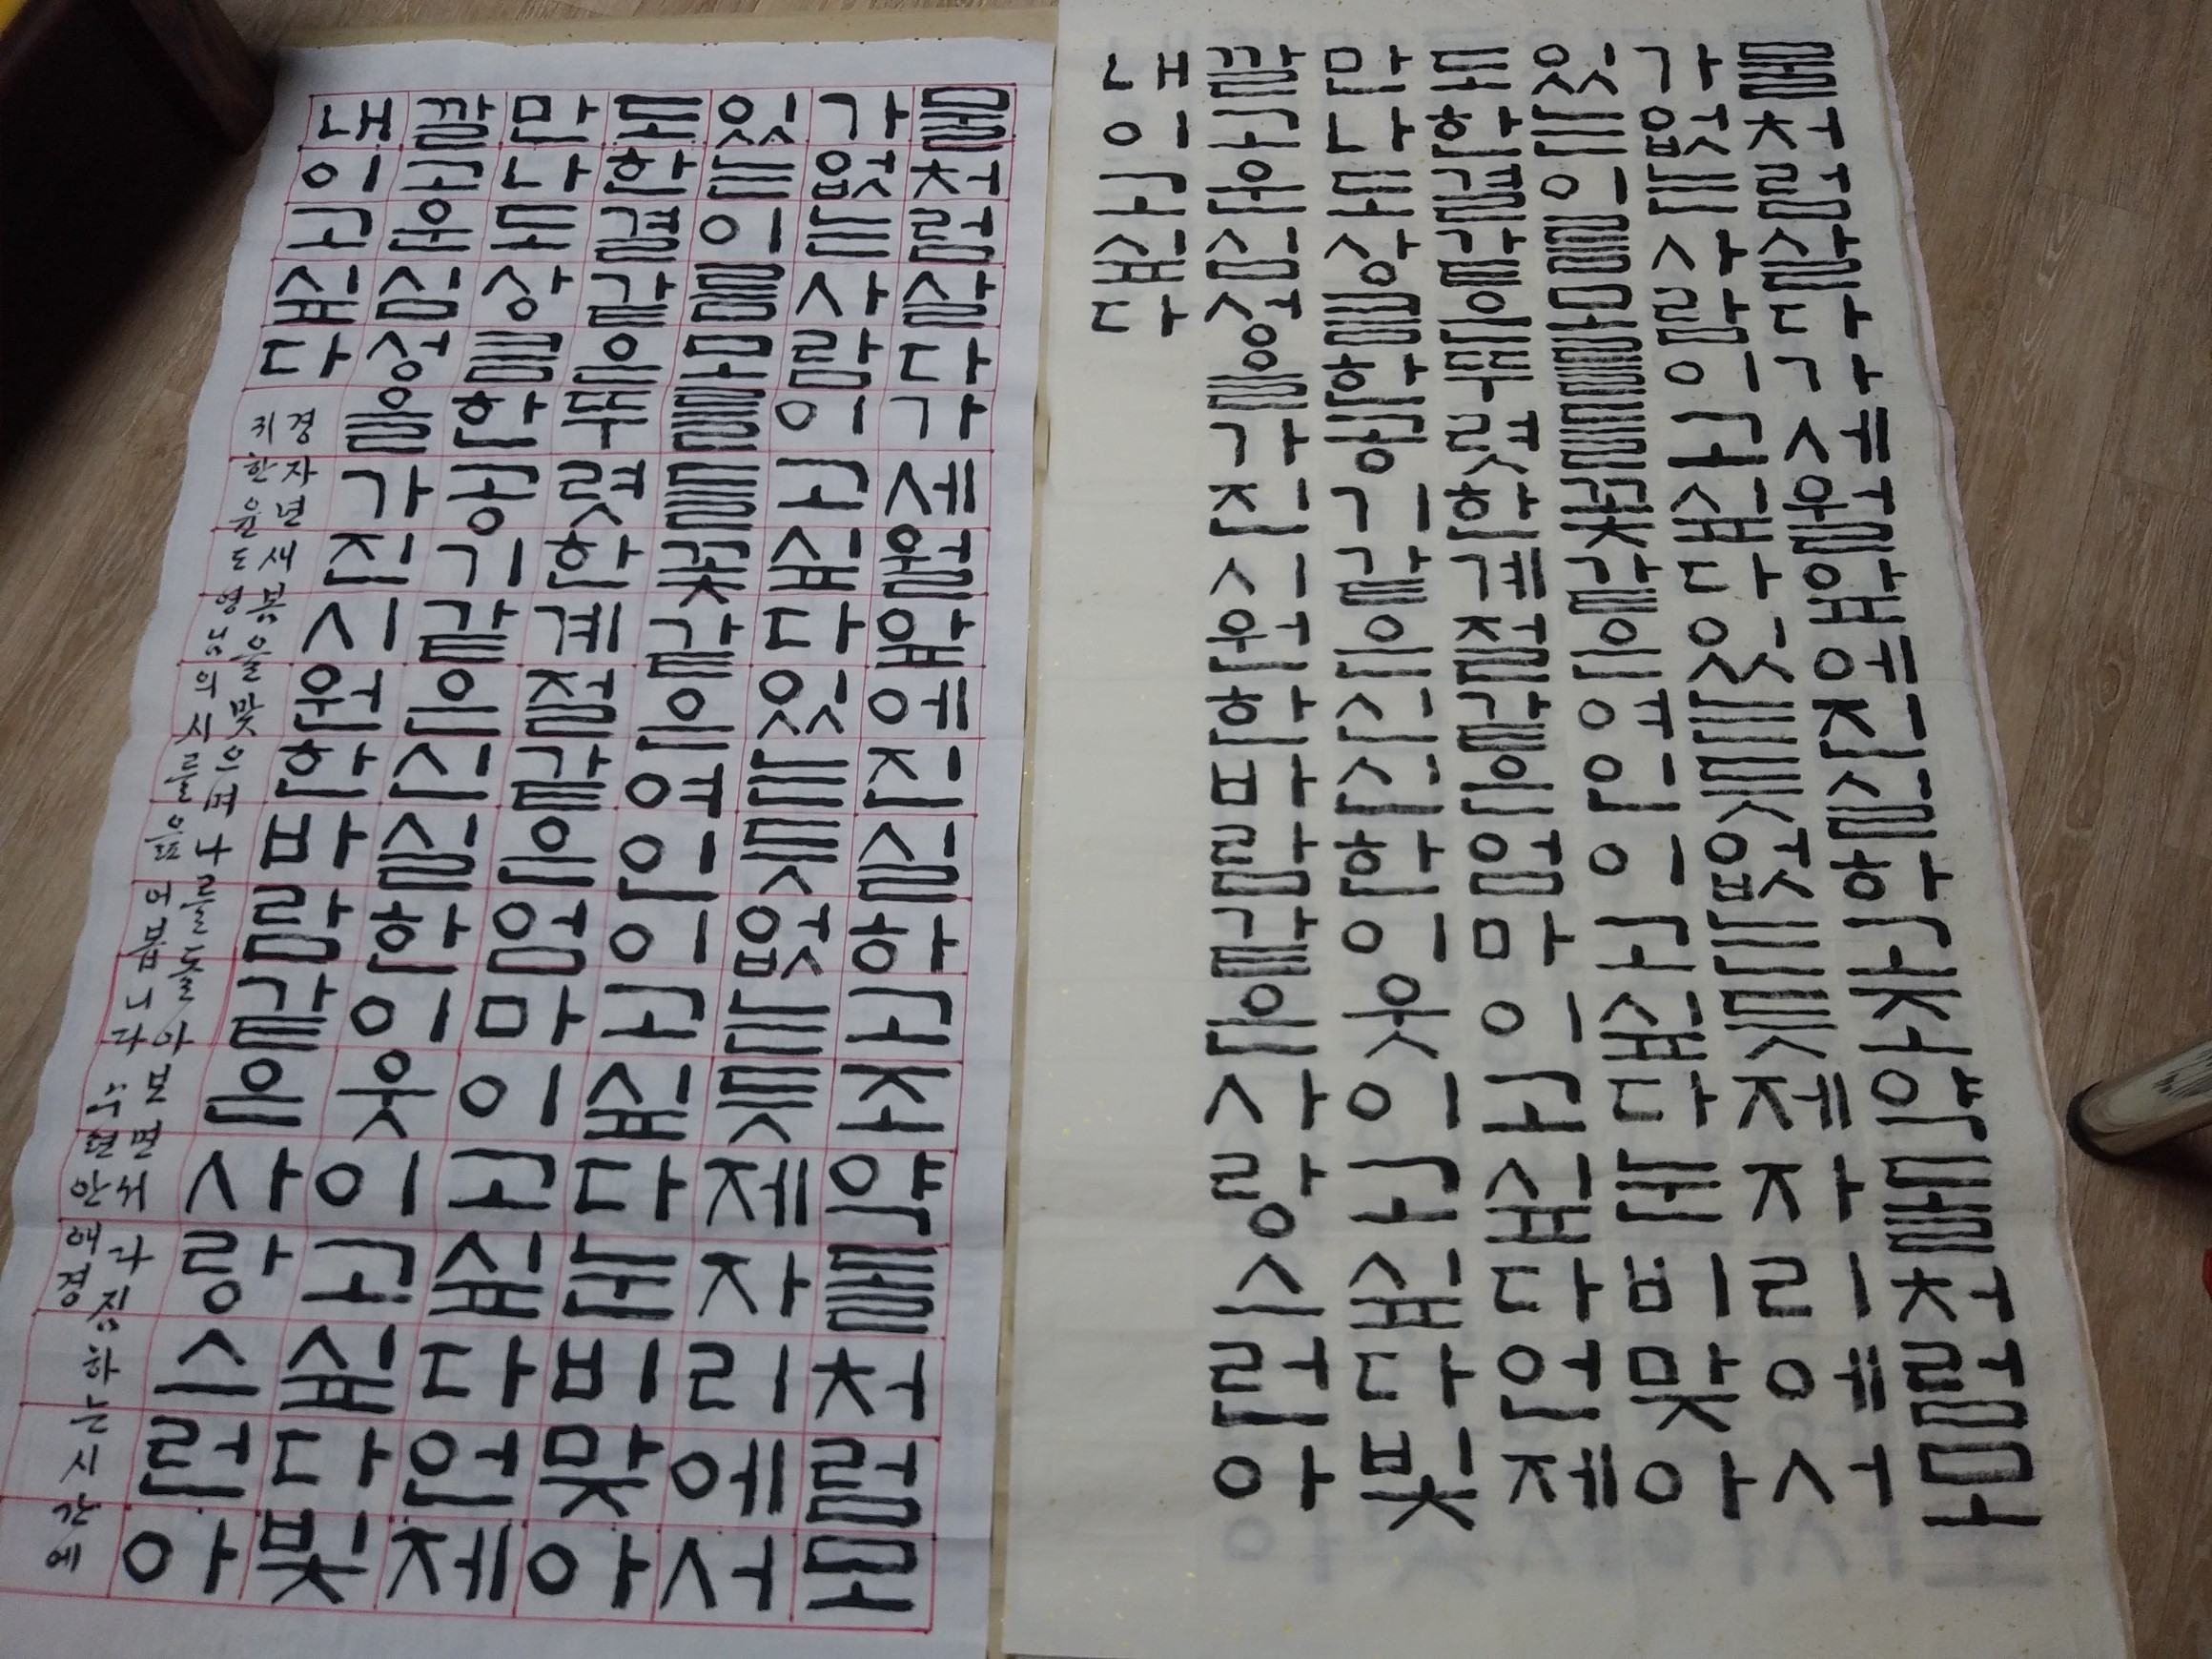 물처럼살다가세월앞에진실하고조약돌처럼모
가없는사람이고싶다있는듯없는듯제자리에서
있는이름모를들꽃같은여인이고싶다눈비맞아
도한결같은뚜렷한계절같은엄마이고싶다언제
만나도상큼한공기같은신실한이웃이고싶다빛
깔고운심성을가진시원한바람같은사랑스런아
내이고싶다
경자년새봄을맞으며나를돌아보면서다짐하는시간에
귀한윤도영님의시를읊어봅니다수현안해경
물처럼살다가세월앞에진실하고조약돌처럼모
가없는사람이고싶다있는듯없는듯제자리에서
있는이름모를들꽃같은여인이고싶다눈비맞아
도한결같은뚜렷한계절같은엄마이고싶다언제
만나도상큼한공기같은신신한이웃이고싶다빛
깔고운심성을가진시원한바람같은사랑스런아
내이고싶다